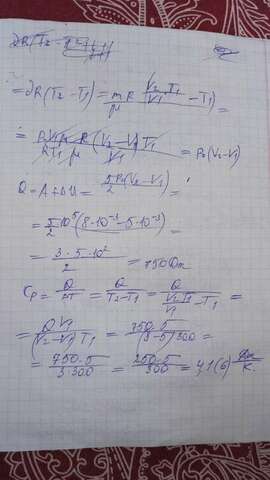 = νR(T₂ - T₁) = m/μ R (V₂ T₁/V₁ - T₁) =
= P₁V₁μ/RT₁μ R (V₂-V₁)T₁/V₁ = P₁(V₂-V₁)
Q = A + ΔU = 5/2 P₁(V₂-V₁) =
= 5/2 10⁵ (8·10⁻³ - 5·10⁻³) =
= 3·5·10²/2 = 750 Дж
Cp = Q/ΔT = Q/(T₂-T₁) = Q/(V₂/V₁ T₁ - T₁) =
= Q V₁/(V₂-V₁)T₁ = 750·5/(8-5)300 =
= 750·5/3·300 = 250·5/300 = 4,1(6) Дж/К.